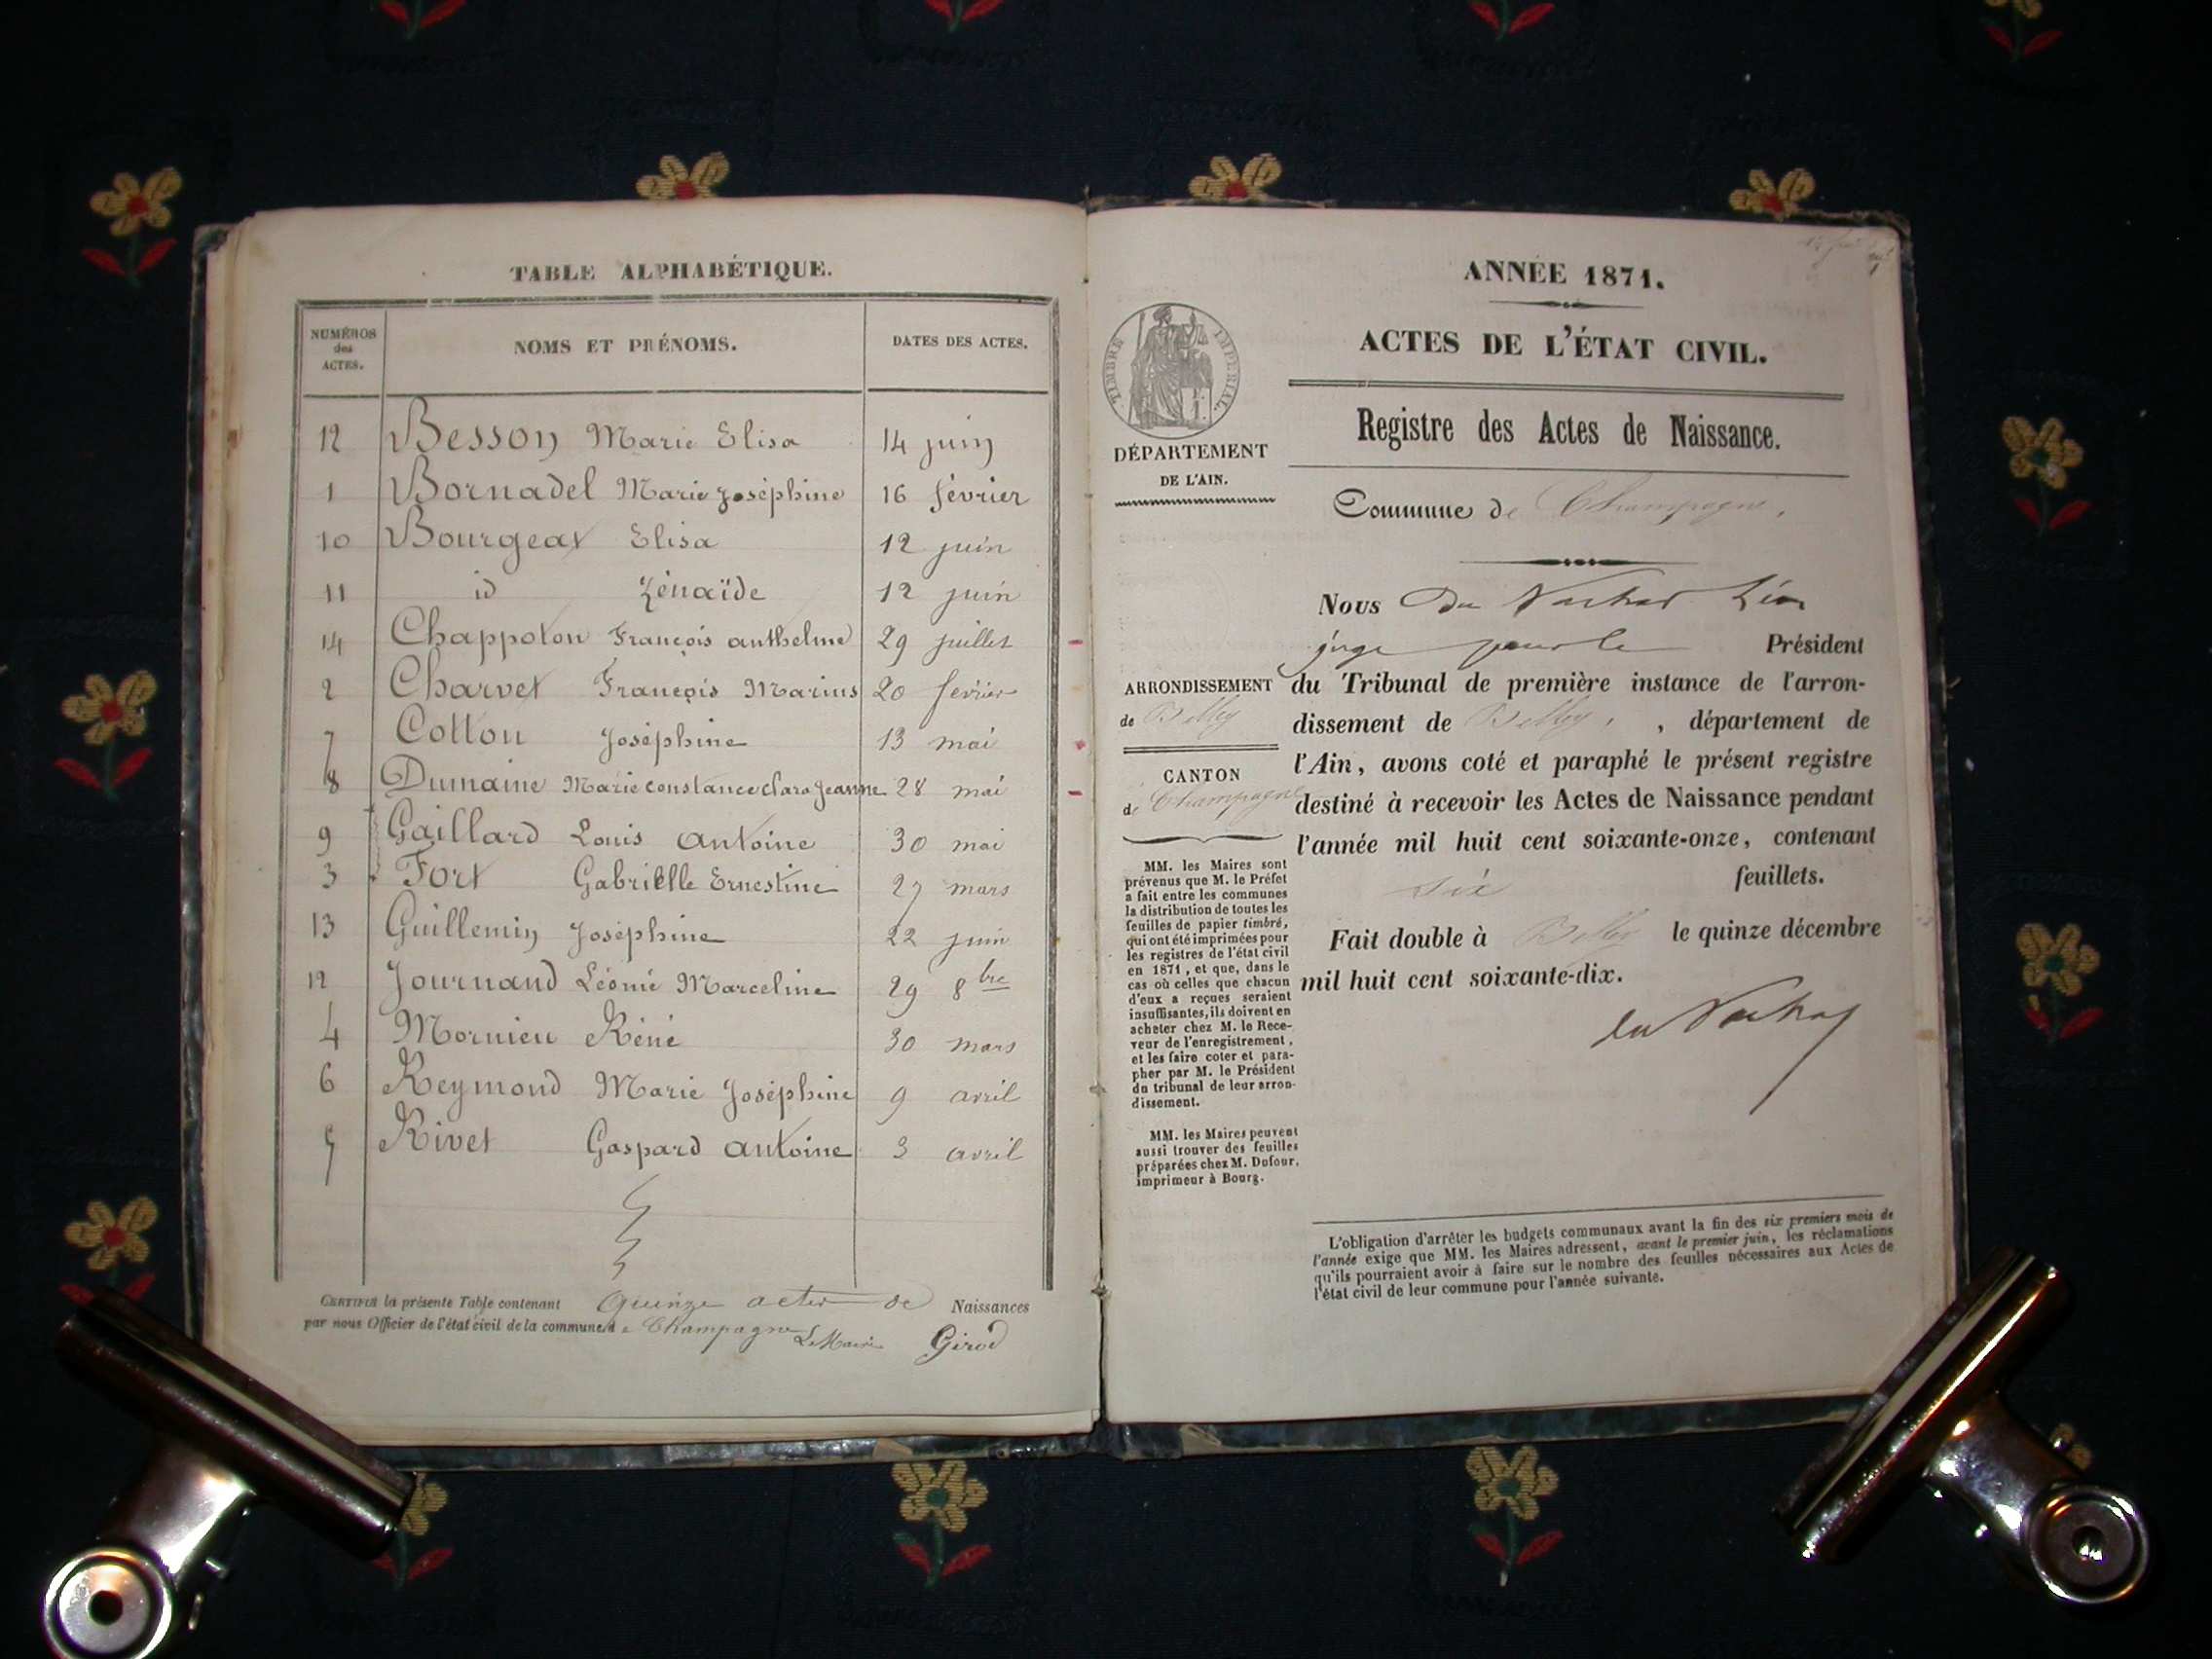 TABLE ALPHABÉTIQUE.
NUMÉROS des ACTES. NOMS ET PRÉNOMS. DATES DES ACTES.
12 Besson Marie Elisa 14 juin
1 Bornadel Marie Joséphine 16 février
10 Bourgeat Elisa 12 juin
11 id Zénaïde 12 juin
14 Chappolon François anthelme 29 juillet
2 Charvet François Marius 20 fevrier
7 Cotton Joséphine 13 mai
8 Dumaine Marie constance clara Jeanne 28 mai
9 Gaillard Louis antoine 30 mai
3 Fort Gabrielle Ernestine 27 mars
13 Guillemin Joséphine 22 juin
12 Journand Léonie Marceline 29 8bre
4 Mornieu Réné 30 mars
6 Reymond Marie Joséphine 9 avril
5 Rivet Gaspard antoine 3 avril
CERTIFIÉ la présente Table contenant Quinze actes de Naissances
par nous Officier de l'état civil de la commune de Champagne Le Maire Girod
ANNÉE 1871.
ACTES DE L'ÉTAT CIVIL.
TIMBRE IMPERIAL.
DÉPARTEMENT
DE L'AIN.
Registre des Actes de Naissance.
Commune de Champagne.
Nous Du Léon
juge pour le Président
du Tribunal de première instance de l'arron-
dissement de Belley, , département de
l'Ain, avons coté et paraphé le présent registre
destiné à recevoir les Actes de Naissance pendant
l'année mil huit cent soixante-onze, contenant
six feuillets.
Fait double à Belley le quinze décembre
mil huit cent soixante-dix.
ARRONDISSEMENT
de Belley
CANTON
de Champagne
MM. les Maires sont
prévenus que M. le Préfet
a fait entre les communes
la distribution de toutes les
feuilles de papier timbré,
qui ont été imprimées pour
les registres de l'état civil
en 1871, et que, dans le
cas où celles que chacun
d'eux a reçues seraient
insuffisantes, ils doivent en
acheter chez M. le Rece-
veur de l'enregistrement,
et les faire coter et para-
pher par M. le Président
du tribunal de leur arron-
dissement.
MM. les Maires peuvent
aussi trouver des feuilles
préparées chez M. Dufour,
imprimeur à Bourg.
L'obligation d'arrêter les budgets communaux avant la fin des six premiers mois de
l'année exige que MM. les Maires adressent, avant le premier juin, les réclamations
qu'ils pourraient avoir à faire sur le nombre des feuilles nécessaires aux Actes de
l'état civil de leur commune pour l'année suivante.